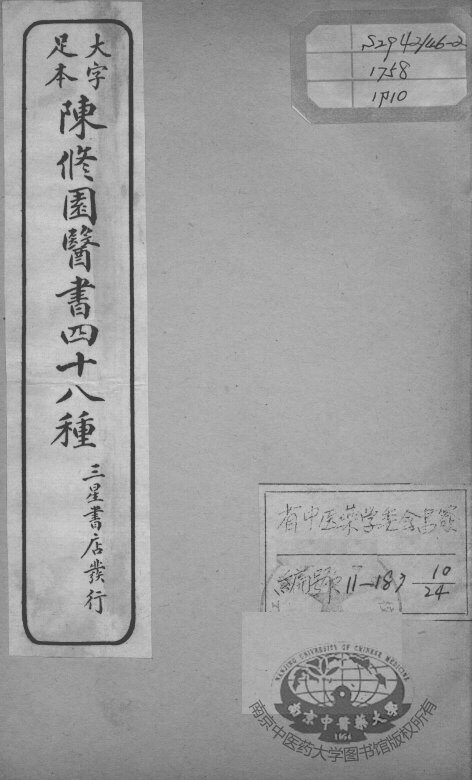 大字
足本
陳修園醫書四十八種
三星書店發行
S2942/46-2
1758
1P10
省中医藥学
編號 11—189 10/24
NANJING UNIVERSITY OF CHINESE MEDICINE
南京中醫藥大學
1954
南京中医药大学图书馆版权所有